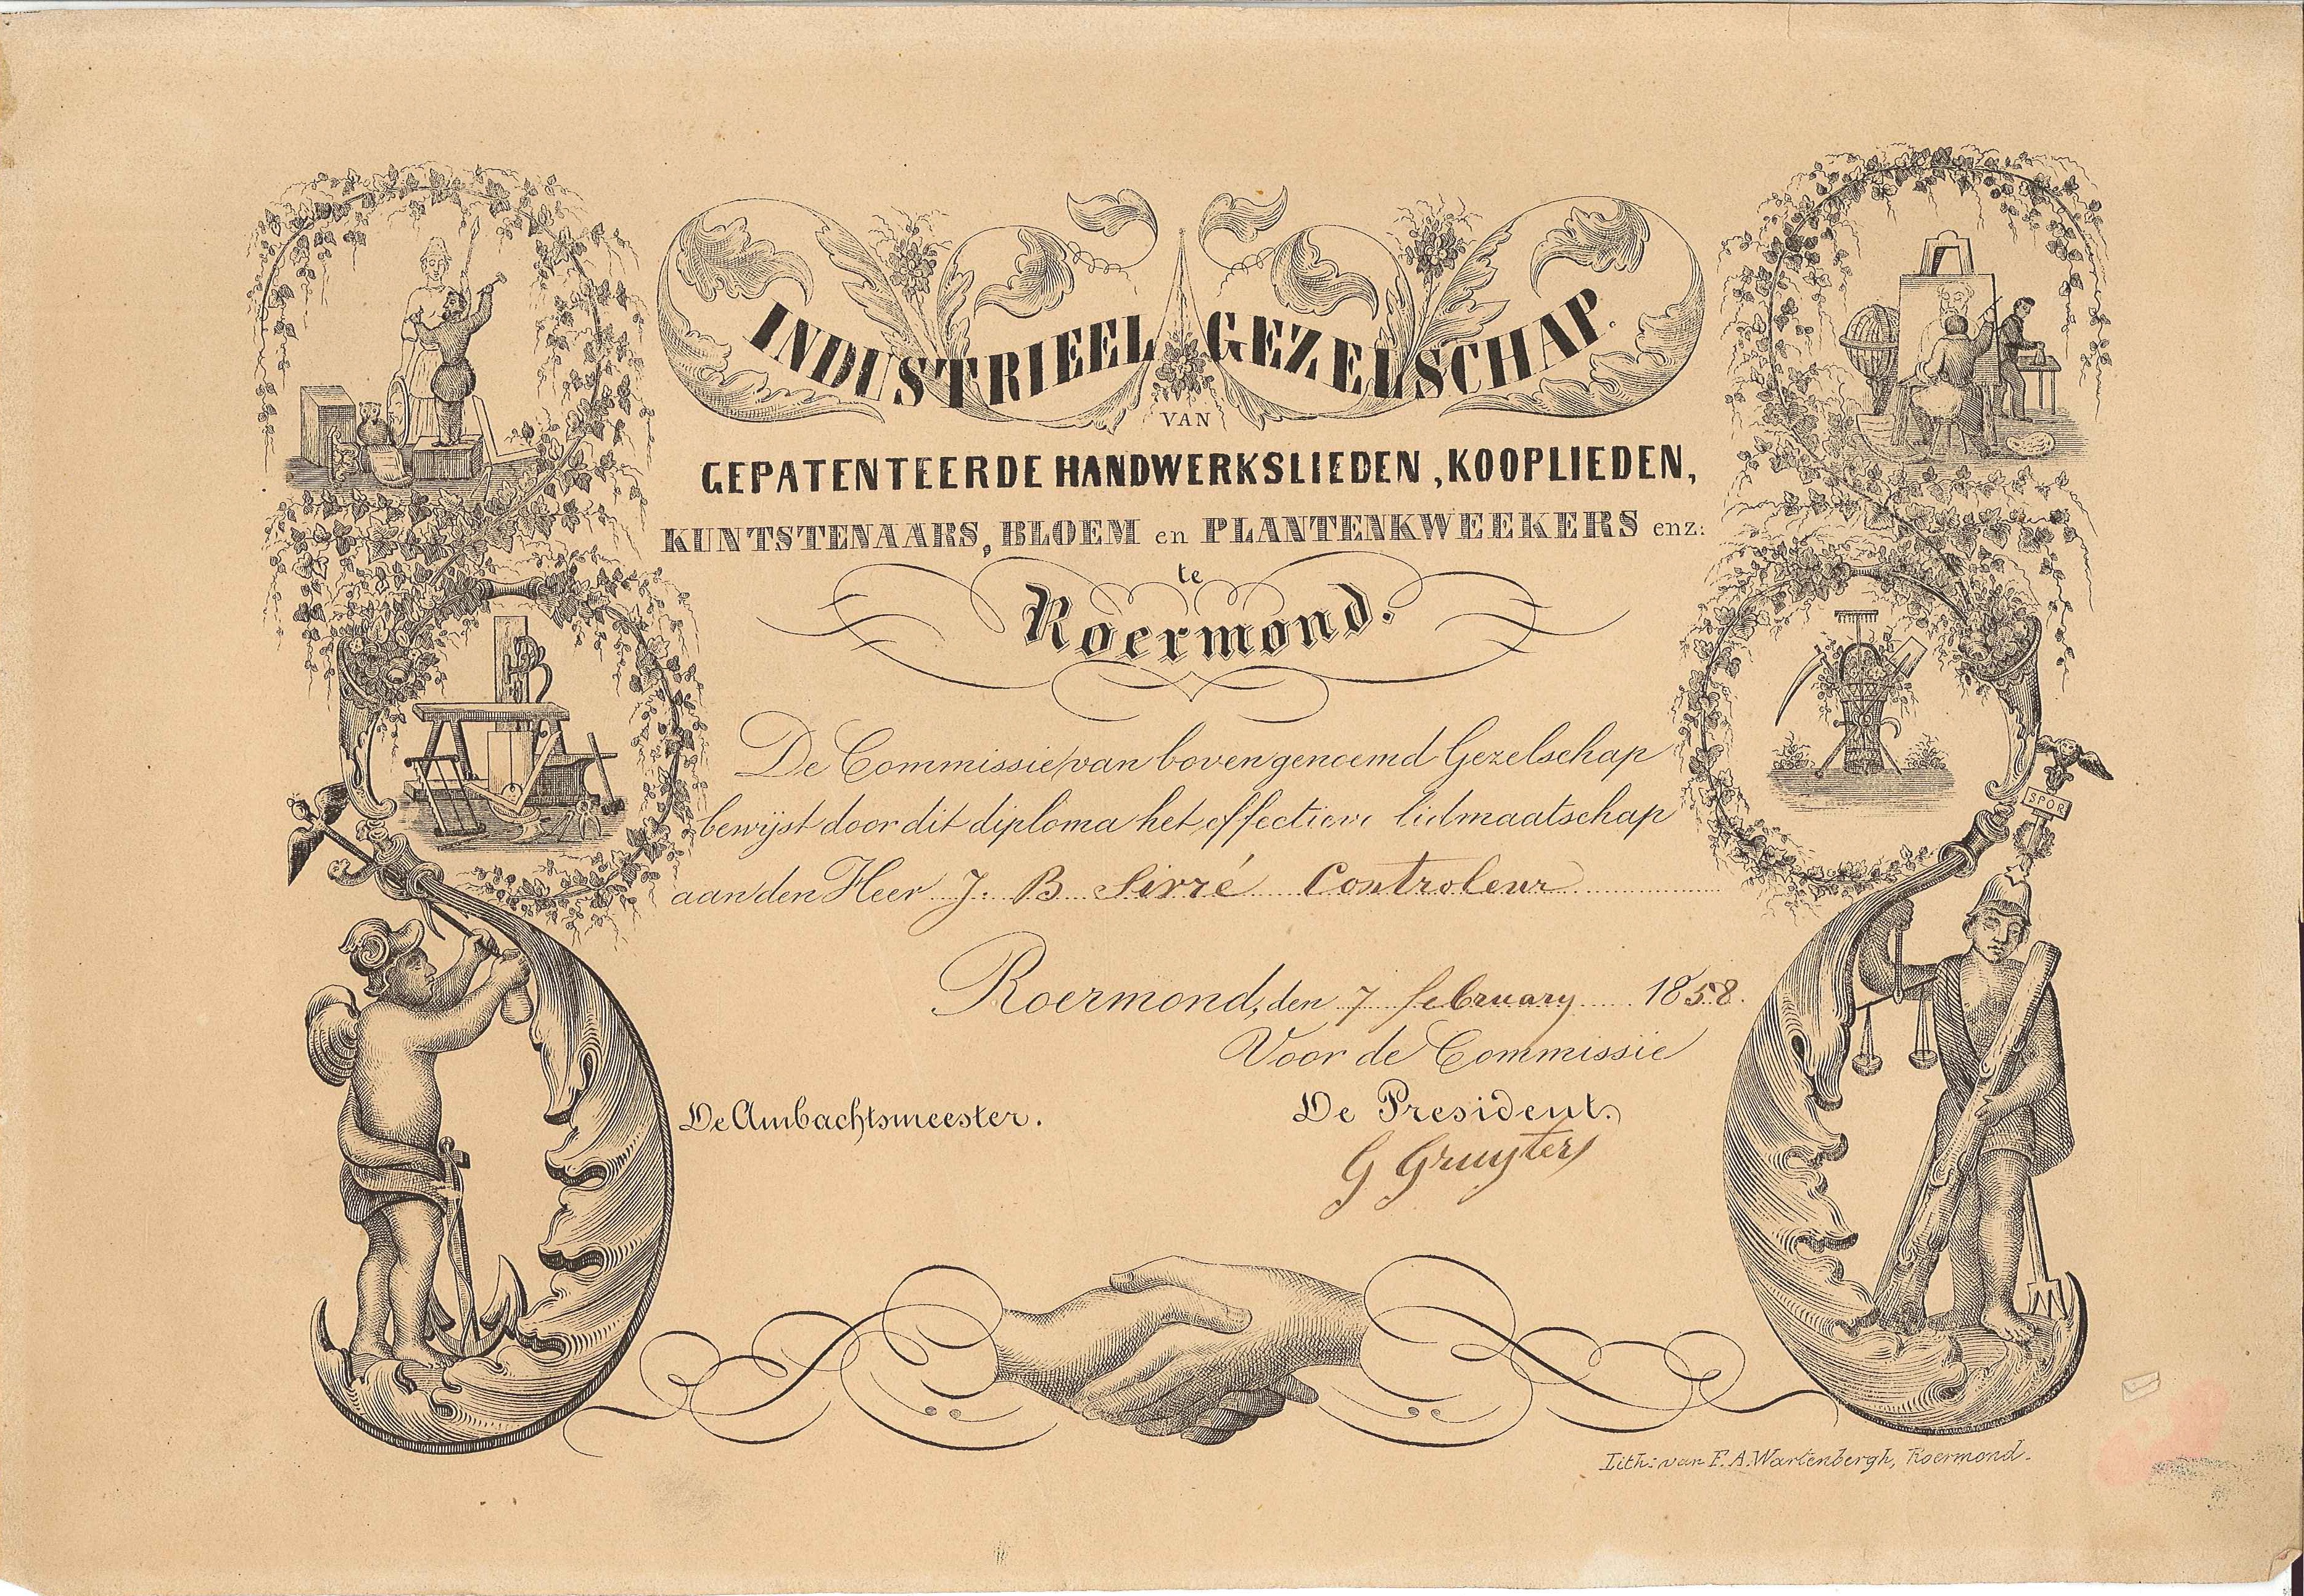 INDUSTRIEEL GEZELSCHAP.
VAN
GEPATENTEERDE HANDWERKSLIEDEN, KOOPLIEDEN,
KUNTSTENAARS, BLOEM en PLANTENKWEEKERS enz:
te
Roermond.
De Commissie van bovengenoemd Gezelschap
bewijst door dit diploma het effective lidmaatschap
SPQR
aan den Heer J. B Sivré Controleur
Roermond, den 7 february 1858.
Voor de Commissie
De Ambachtsmeester. De President.
G Gruyters
Lith: van F. A. Wartenbergh, Roermond.